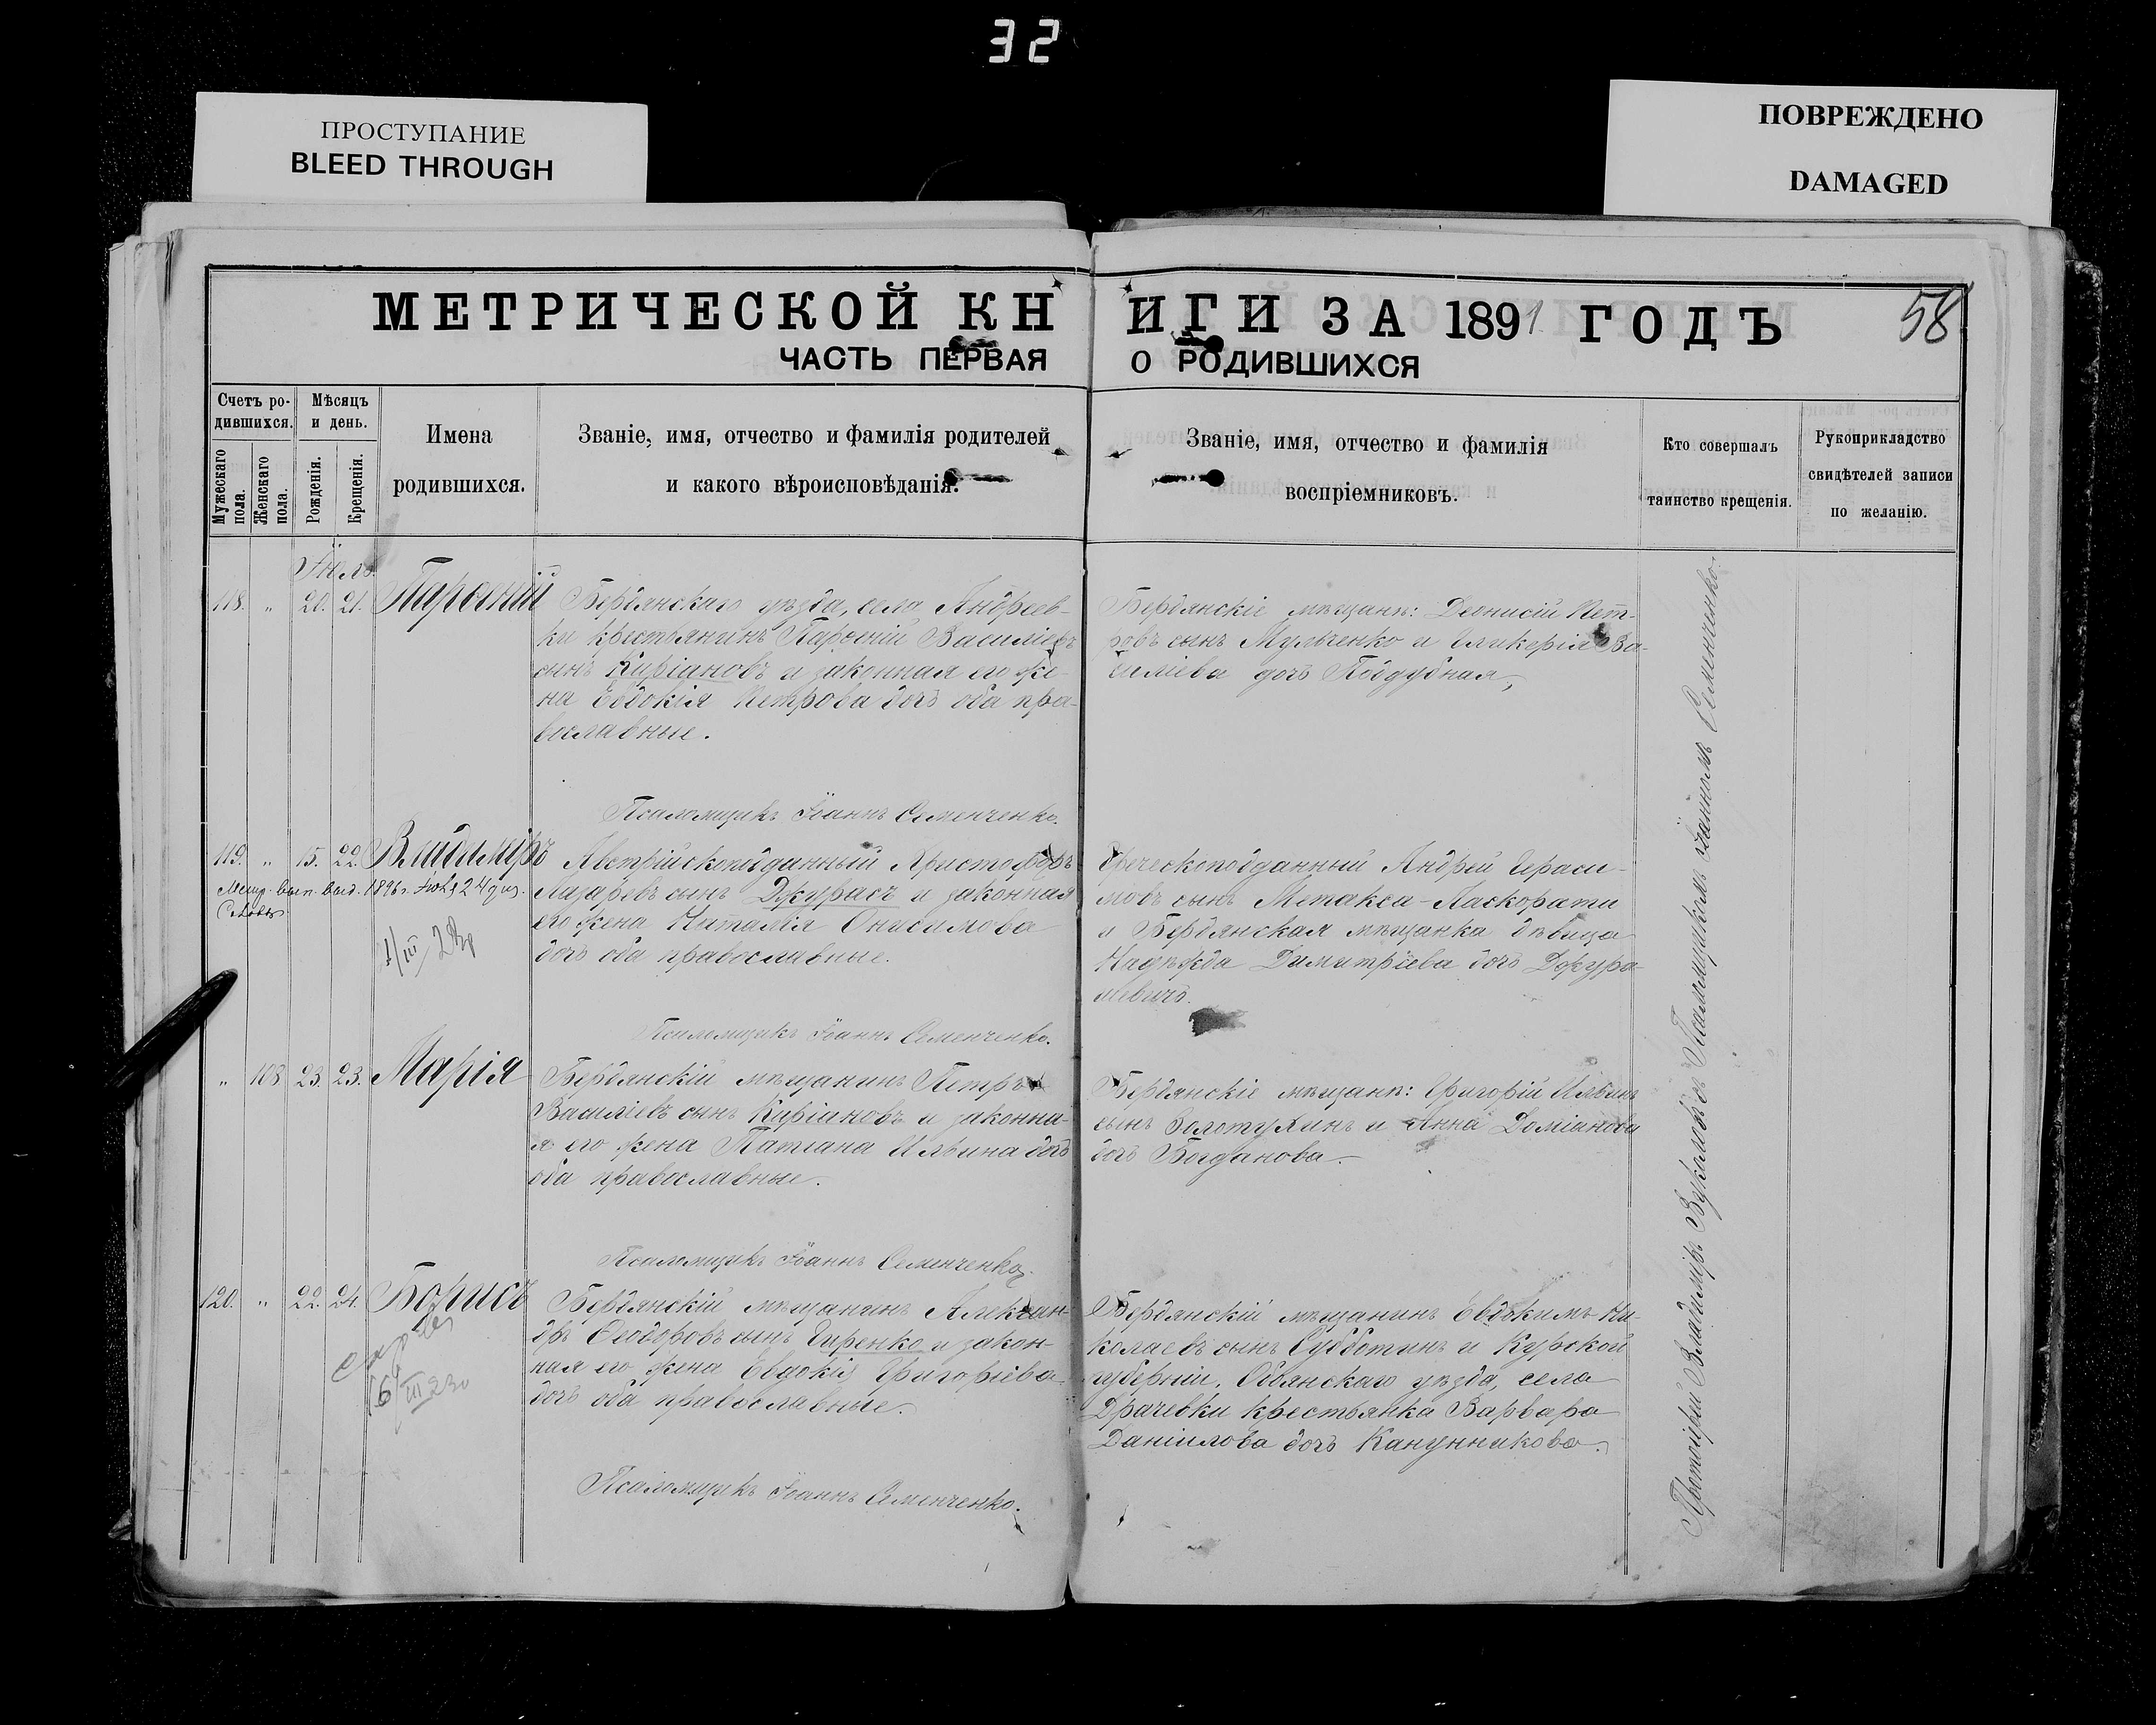 32
ПРОСТУПАНИЕ
BLEED THROUGH
ПОВРЕЖДЕНО
DAMAGED
58
МЕТРИЧЕСКОЙ КНИГИ ЗА 1891 ГОДЪ
ЧАСТЬ ПЕРВАЯ О РОДИВШИХСЯ
Счетъ ро-
дившихся.
Мужескаго пола.
Женскаго пола.
Мѣсяцъ
и день.
Рожденія.
Крещенія.
Имена
родившихся.
Званіе, имя, отчество и фамилія родителей
и какого вѣроисповѣданія.
Званіе, имя, отчество и фамилія
воспріемниковъ.
Кто совершалъ
таинство крещенія.
Рукоприкладство
свидѣтелей записи
по желанію.
Іюль
118. " 20. 21. Парѳеній
Бердянскаго уѣзда, села Андреев-
ки крестьянинъ Парѳеній Василіевъ
сынъ Кипріановъ и законная его же-
на Евдокія Петрова дочь оба пра-
вославные.
Псаломщикъ Іоаннъ Семенченко.
Бердянскіе мѣщане: Деонисій Пет-
ровъ сынъ Мульченко и Гликерія Ва-
силіева дочь Поддубная,
119. " 15. 22. Владиміръ
1896 г. 24
Австрійскоподданный Христофоръ
Лазаревъ сынъ Джурасъ и законная
его жена Наталія Онисимова
дочь оба православные.
Псаломщикъ Іоаннъ Семенченко.
Греческоподданный Андрей Гераси-
мовъ сынъ Метакса-Ласкорати
и Бердянская мѣщанка дѣвица
Надежда Димитріева дочь
" 108 23. 23. Марія
Бердянскій мѣщанинъ Петръ
Василіевъ сынъ Кипріановъ и законна-
я его жена Татіана Ильина дочь
оба православные.
Псаломщикъ Іоаннъ Семенченко.
Бердянскіе мѣщане: Григорій Ильинъ
сынъ Золотухинъ и Анна Доміанова
дочь Богданова.
120. " 22. 24. Борисъ
Бердянскій мѣщанинъ Алексан-
дръ Ѳеодоровъ сынъ Гиренко и закон-
ная его жена Евдокія Григоріева
дочь оба православные.
Псаломщикъ Іоаннъ Семенченко.
Бердянскій мѣщанинъ Евдокимъ Ни-
колаевъ сынъ Субботинъ и Курской
губерніи, Обоянскаго уѣзда, села
Драчевки крестьянка Варвара
Даніилова дочь Канунникова.
Протоіерей Владиміръ съ Псаломщикомъ Іоанномъ Семенченко.